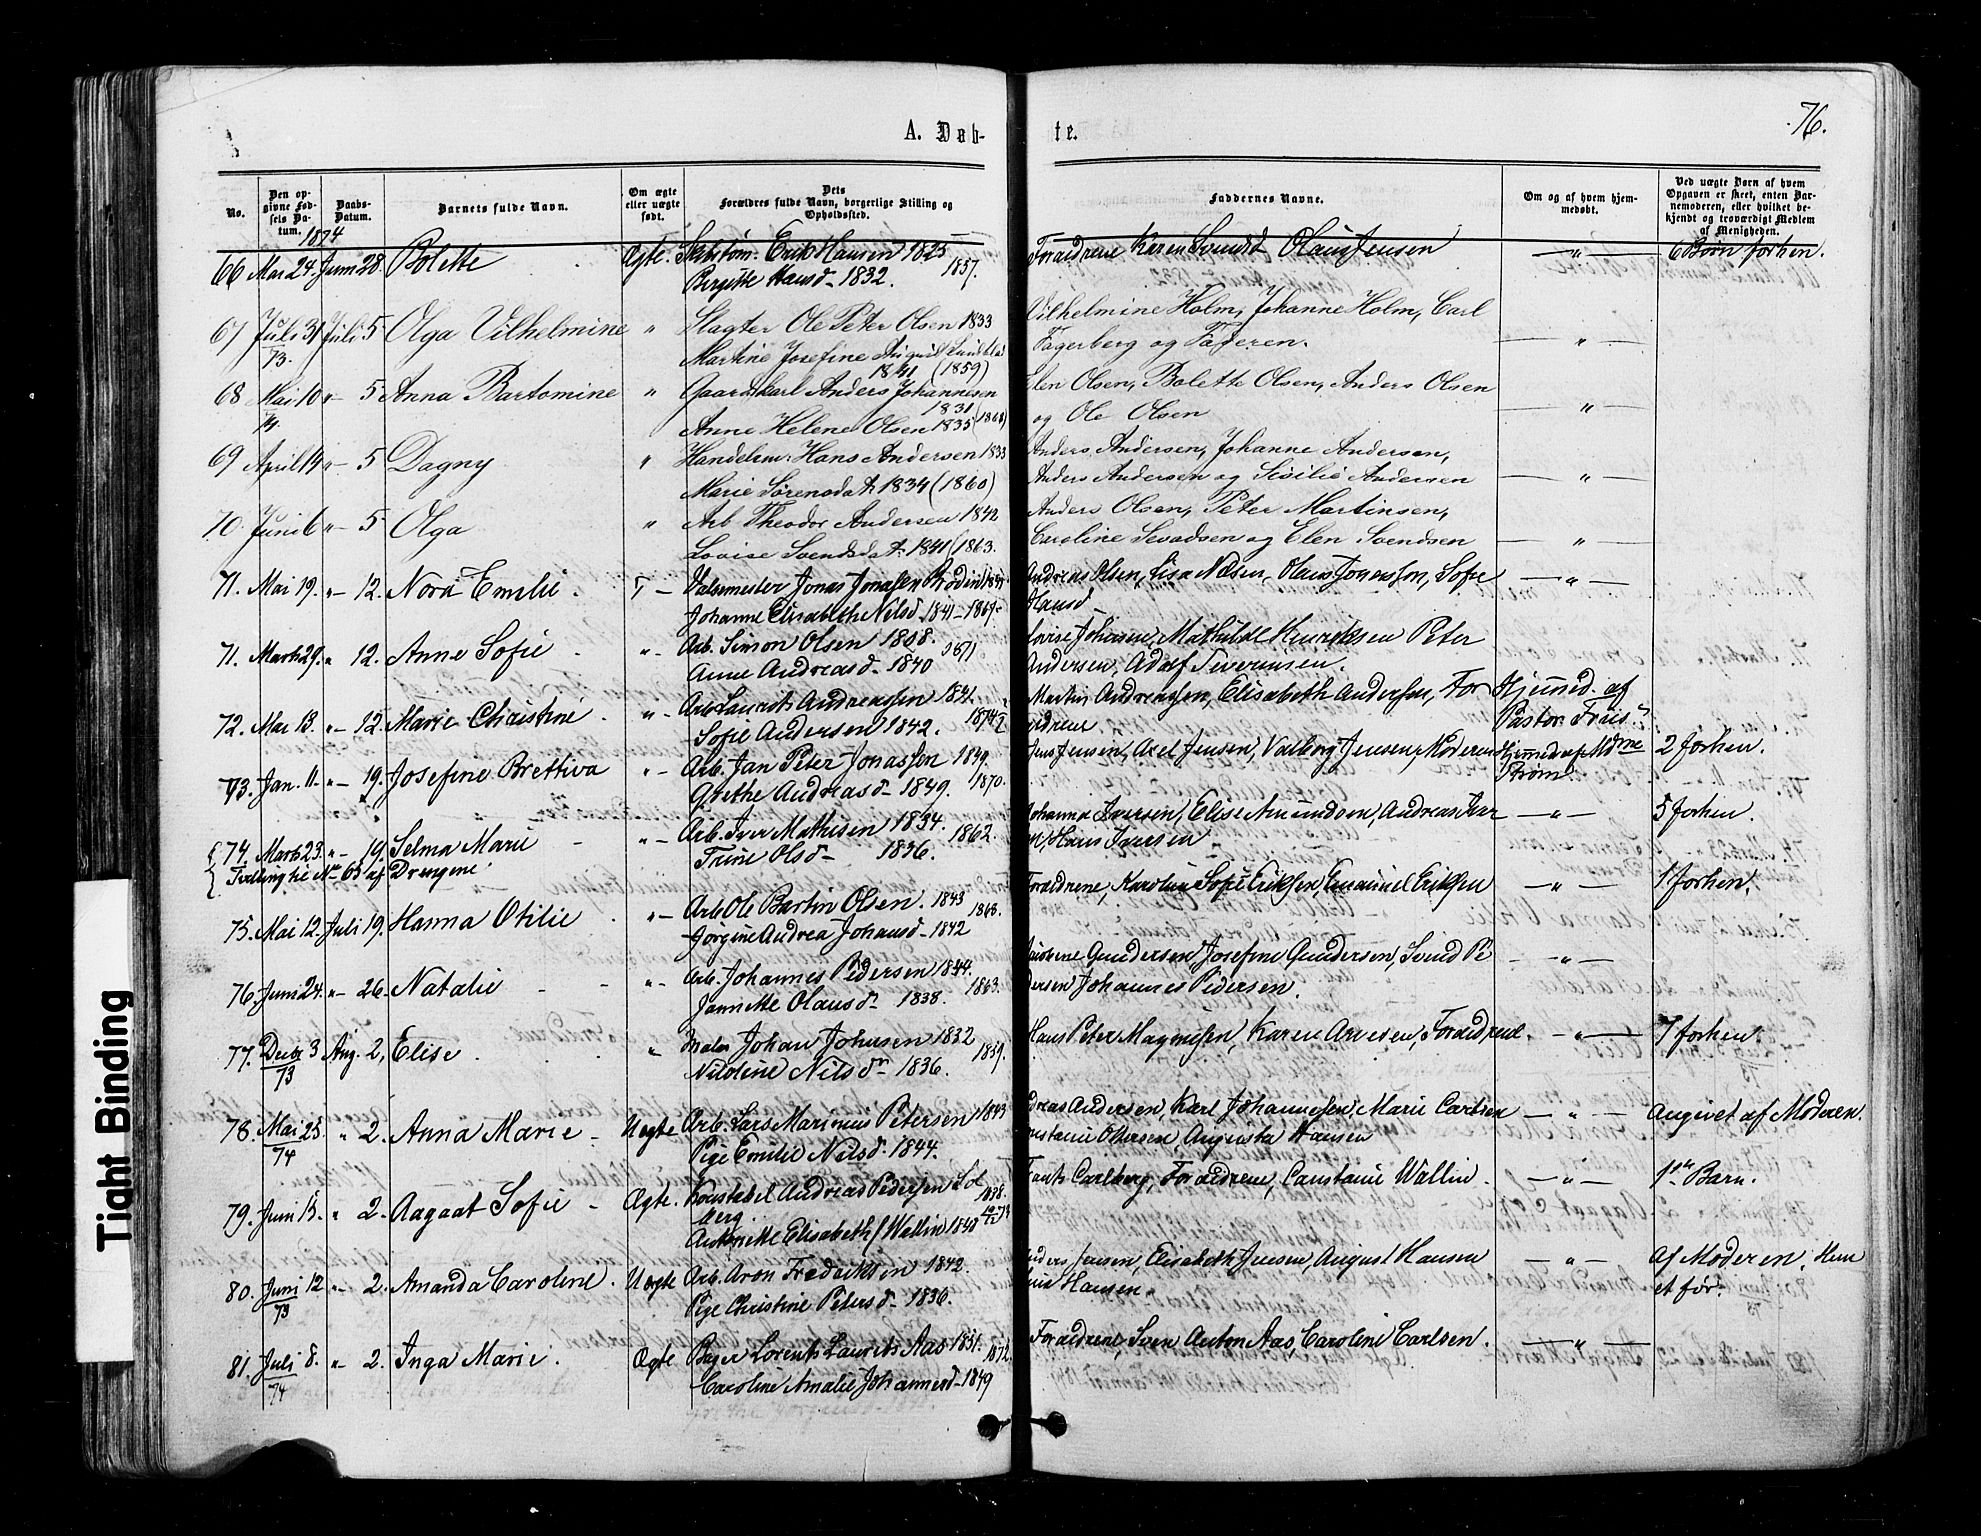 76.
A. Døb-
te.
No.
Den op-
givne Fød-
sels Da-
tum.
Daabs-
Datum.
Barnets fulde Navn.
Om ægte
eller uægte
født.
Dets
Forældres fulde Navn, borgerlige Stilling og
Opholdssted.
Faddernes Navne.
Om og af hvem hjem-
medøbt.
Ved uægte Børn af hvem
Opgaven er skeet, enten Bar-
nemoderen, eller hvilket be-
kjendt og troværdigt Medlem
af Menigheden.
1874
66 Mai 24. Juni 28. Bolette Ægte. Erik Hansen 1825 Forældrene Karen Svendsd Olaus Jensen — " — 6 Børn forhen.
Birgitte Hansd - 1832. 1857.
67 Juli 31 Juli 5 Olga Vilhelmine " Slagter Ole Peter Olsen 1833 Vilhelmine Holm, Johanne Holm, Carl
73. Martine Josefine Fagerberg og Faderen. — " —
1841 (1859)
68 Mai 10 "- 5 Anna Bartomine " Gaardskarl Anders Johannesen Elen Olsen, Bolette Olsen, Anders Olsen
74. 1831 og Ole Olsen — " —
Anne Helene Olsen 1835 (1868)
69 April 14 "- 5 Dagny " Handelsm. Hans Andersen 1833 Anders Andersen, Johanne Andersen,
Marie Sørensdat. 1834 (1860) Anders Andersen og Sisilie Andersen — " —
70. Juni 6 "- 5 Olga " Arb Theodor Andersen 1842 Anders Olsen, Peter Martinsen,
Lovise Svendsdat. 1841 (1863. Caroline og Elen Svendsen — " —
71. Mai 19. "- 12. Nora Emilie. Jonas Jonassen Andreas Olsen, Lisa Olaus Jonasson, Sofie — " —
Johanne Elisabeth Nilsd. 1841 - 1869. Hansd
71. Marts 29. " 12. Anne Sofie "- Arb. Simon Olsen Lovise Johansen, Mathilde Henriksen Peter
Anne Andreasd. 1840 Andersen, Adolf Severinsen.
72. Mai 13. "- 12. Marie Christine. "- Arb. Laurits Andreassen 1841. Martin Andreassen, Elisabeth Andersen, For Hjemmed. af
Sofie Andersen 1842. ældrene Pastor
73. Jan. 11. "- 19. Josefine Brettiva "- Arb. Jan Peter Jonassen 1849. Jens Jensen, Axel Jensen, Valborg Jensen, Moderen Hjemmed af 2 forhen.
Grethe Andreasd - 1849. 1870. Strøm
74. Marts 23. "- 19. Selma Marie - "- Arb. Iver Mathisen 1834. 1862. Johanna Iversen, Elise Amundsen, Andreas Iver — " — 5 forhen.
Tvilling til No 65 af Drengene Trine Olsd - 1836. en, Hans Iversen
75. Mai 12. Juli 19. Hanna Otilie. "- Arb Ole Bartin Olsen. 1843 1868. Forældrene, Karolina Sofie Eriksen, Emanuel Eriksen — " — 1 forhen.
Jørgine Andrea Johansd - 1842
76. Juni 24. "- 26. Natalie - "- Arb. Johannes Pedersen 1844. 1863. Gundersen, Josefine Gundersen, Svend Pe — " —
Jannikke Olausd - 1838. dersen Johannes Pedersen.
77. Decbr 3 Aug. 2, Elise. " Maler Johan Johnsen 1832 1859. Hans Peter Magnussen, Karen Arnesen, Forældrene. — " — 7 forhen.
73 Nicoline Nilsd - 1836.
78. Mai 25. " 2. Anna Marie - Uægte Arb. Lars Marinus Petersen 1843 dreas Andersen, Karl Johannesen, Marie Carlsen — " — Angivet af Moderen.
74 Pige Emilie Nilsd. 1844. nstanse Ottersen, Augusta Hansen
79. Juni 13. " 2. Aagaat Sofie - Ægte. Konstabel Andreas Pedersen 1838. Carlberg, Forældrene, Constanse Wallin. — " — 1ste Barn.
berg
Antonette Elisabeth (Wallin) 1848
80. Juni 12 "- 2. Amanda Caroline. Uægte Arb. Aron Fredriksen 1842. nders Jensen, Elisabeth Jensen, August Hansen — " — Af Moderen. Hun
73 Pige Christine Petersd - 1836. Hansen. et før.
81. Juli 8. "- 2. Inga Marie. Ægte Bager Lorents Laurits Aas 1851. 1872. Forældrene, Sven Anton Aas, Caroline Carlsen. — " —
74 Caroline Amalie Johannesd - 1849
Tight Binding